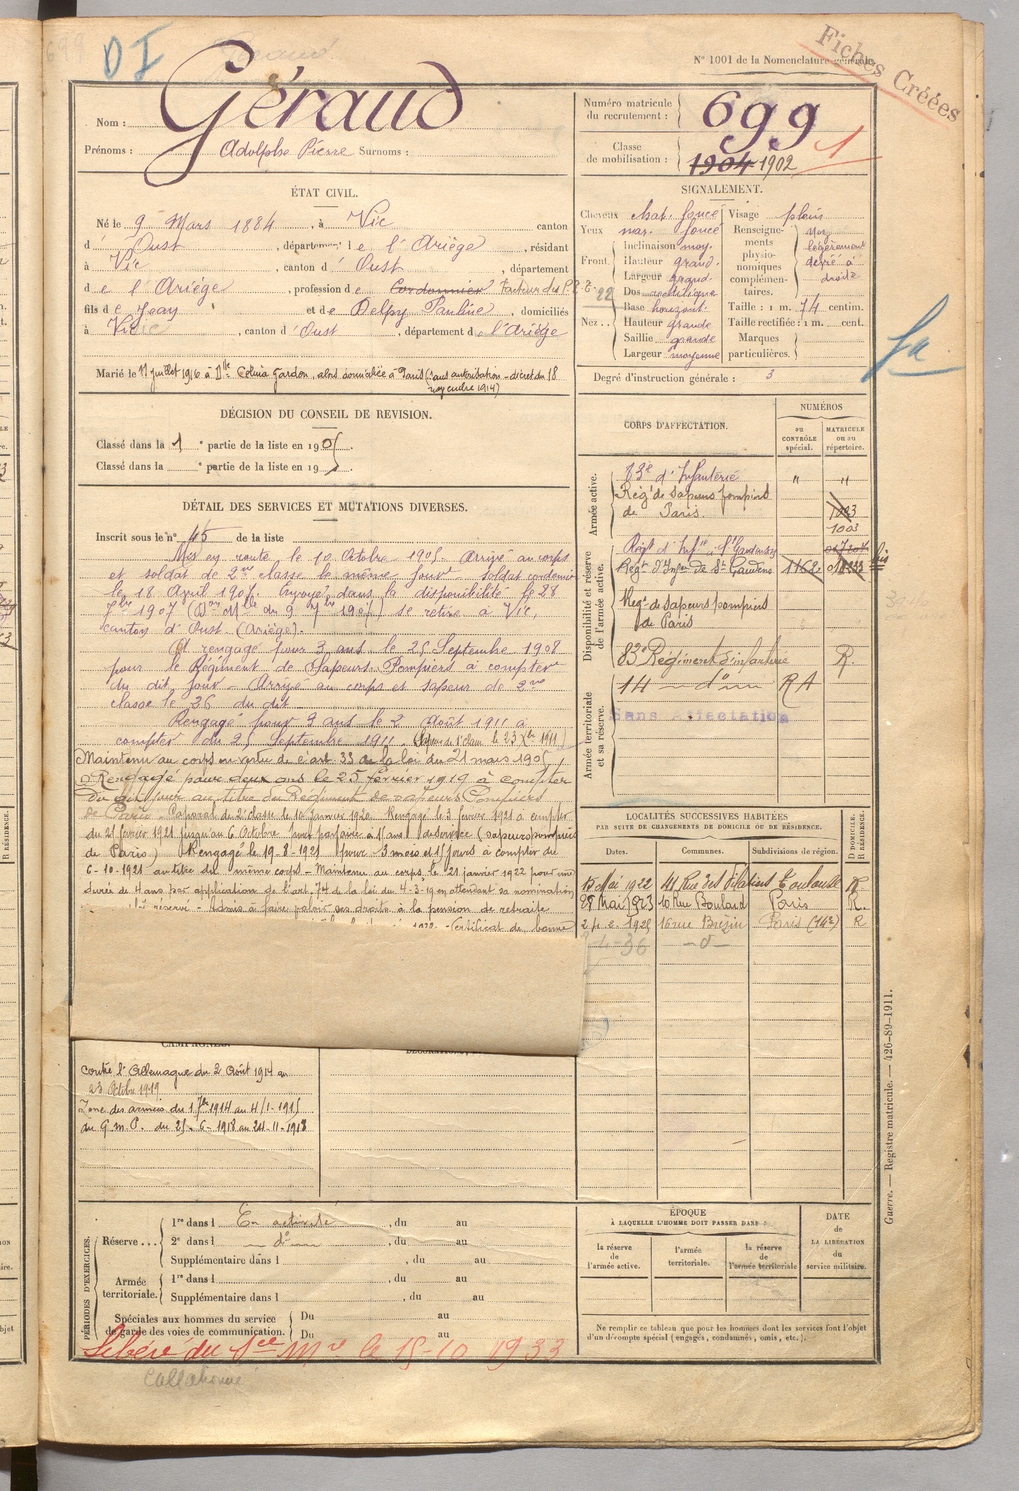 D I
N° 1001 de la Nomenclature générale.
Fiches Créées
Nom : Géraud
Prénoms : Adolphe Pierre Surnoms :
Numéro matricule du recrutement : 699
Classe de mobilisation : 1904 1902
1
ÉTAT CIVIL.
Né le 9 Mars 1884, à Vic canton
d' Oust, département de l'Ariège, résidant
à Vic, canton d' Oust, département
de l'Ariège, profession de Cordonnier facteur des P.T.T.
fils de Jean et de Delpy Pauline, domiciliés
à Vic, canton d' Oust, département d l'Ariège
Marié le 11 juillet 1916 à Dlle Célina Gardon, alors domiciliée à Paris (sans autorisation - décret du 18
novembre 1914)
SIGNALEMENT.
Cheveux chat. foncé
Yeux mar. foncé
Front
Inclinaison moy.
Hauteur grand.
Largeur grand.
Nez
Dos rectiligne
Base horizont.
Hauteur grande
Saillie grande
Largeur moyenne
Visage plein
Renseignements physionomiques complémentaires. Nez légèrement dévié à droite
Taille : 1 m. 74 centim.
Taille rectifiée : 1 m. cent.
Marques particulières.
Degré d'instruction générale : 3
DÉCISION DU CONSEIL DE REVISION.
Classé dans la 1 e partie de la liste en 1905.
Classé dans la e partie de la liste en 19
DÉTAIL DES SERVICES ET MUTATIONS DIVERSES.
Inscrit sous le n° 45 de la liste
Mis en route le 10 Octobre 1905. Arrivé au corps
et soldat de 2me classe le même jour. Soldat cordonnier
le 18 Avril 1907. Envoyé dans la disponibilité le 28
7bre 1907 se retire à Vic,
canton d'Oust (Ariège).
A rengagé pour 3 ans le 25 Septembre 1908
pour le Régiment de Sapeurs Pompiers à compter
du dit jour - Arrivé au corps et sapeur de 2me
classe le 26 du dit
Rengagé pour 3 ans le 2 Août 1911 à
compter du 25 Septembre 1911. (Sapeur de 1e classe le 23 Xbre 1911)
Maintenu au corps en vertu de l'art. 33 de la loi du 21 mars 1905
Rengagé pour deux ans le 25 février 1919 à compter
du dit jour au titre du Régiment de sapeurs Pompiers
de Paris - Caporal de 2e classe le 16 janvier 1920. Rengagé le 3 février 1921 à compter
du 21 février 1921 jusqu'au 6 Octobre pour parfaire à 15 ans de service (sapeurs pompiers
de Paris) Rengagé le 19-8-1921 pour 3 mois et 15 jours à compter du
6-10-1921 au titre du même corps - Maintenu au corps le 21 janvier 1922 pour une
durée de 4 ans par application de l'art. 74 de la loi du 4-3-19 en attendant sa nomination
réservé - Admis à faire valoir ses droits à la pension de retraite
Certificat de bonne
CORPS D'AFFECTATION.
NUMÉROS
au CONTRÔLE spécial.
MATRICULE ou au répertoire.
Armée active.
83e d'Infanterie " "
Régt de sapeurs pompiers
de Paris. 1003
1003
Disponibilité et réserve de l'armée active.
Régt d'Infie St Gaudens
Régt d'Infie de St Gaudens 11682 bis
Régt de Sapeurs pompiers
de Paris
83e Régiment d'infanterie R.
Armée territoriale et sa réserve.
14 - do - RA
Sans Affectation
LOCALITÉS SUCCESSIVES HABITÉES
PAR SUITE DE CHANGEMENTS DE DOMICILE OU DE RÉSIDENCE.
Dates. Communes. Subdivisions de région. D DOMICILE. R RÉSIDENCE.
15 Mai 1922 41 Rue des Filatiers Toulouse R
28 Mai 1923 10 Rue Boulard Paris R.
24-2-1925 16 rue Brézin Paris (14e) R
4-36 - do -
CAMPAGNES.
Contre l'Allemagne du 2 Août 1914 au
23 Octobre 1919.
Zone des armées du 1 7bre 1914 au 4/1-1915
au G.M.P. du 25-6-1918 au 24-11-1918
PÉRIODES D'EXERCICES.
Réserve...
1re dans l En activité, du au
2e dans l - do -, du au
Supplémentaire dans l , du au
Armée territoriale.
1re dans l , du au
Supplémentaire dans l , du au
Spéciales aux hommes du service de garde des voies de communication.
Du au
Du au
Libéré du Sce Mre le 15-10 1933
ÉPOQUE
À LAQUELLE L'HOMME DOIT PASSER DANS :
la réserve de l'armée active.
l'armée territoriale.
la réserve de l'armée territoriale
DATE de LA LIBÉRATION du service militaire.
Ne remplir ce tableau que pour les hommes dont les services font l'objet
d'un décompte spécial (engagés, condamnés, omis, etc.).
Guerre. — Registre matricule. — 426-89-1911.